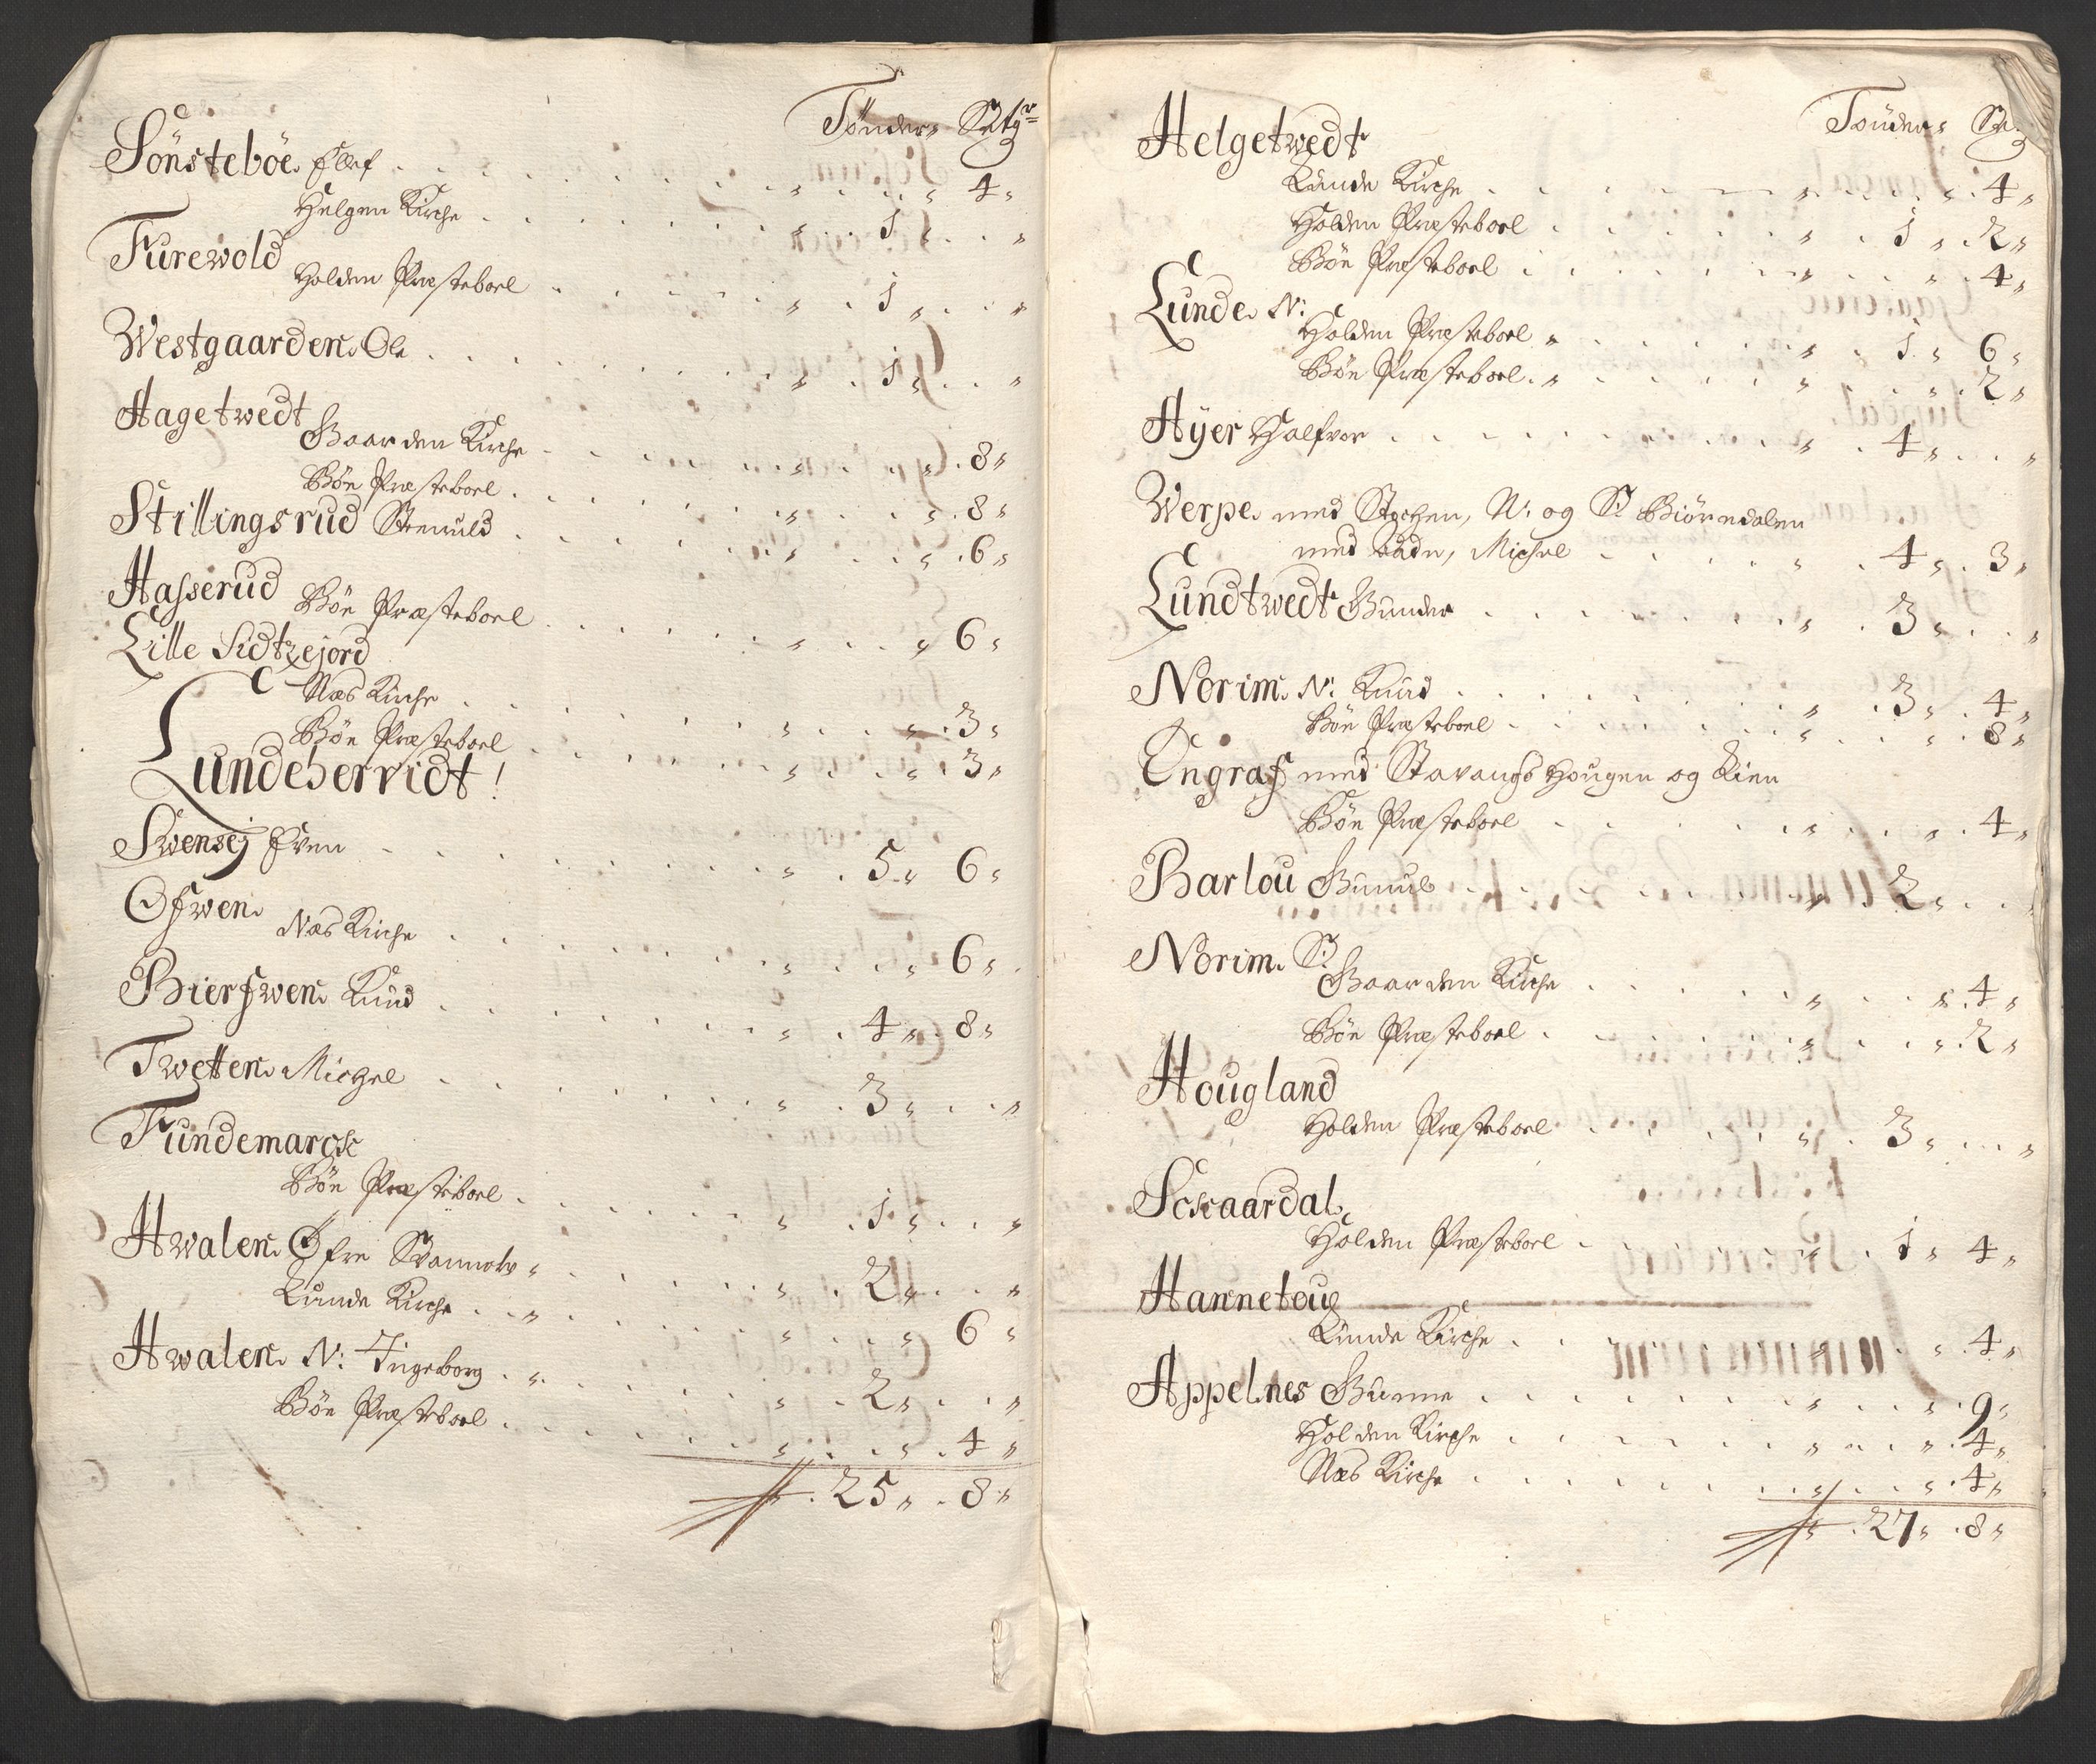 Tönder, Setg
Sönsteböe Ellef . . . „ 4 „
Helgen Kirche . . . 1 „ „
Furewold
Holden Præsteboel . . . 1 „ „
Westgaarden Ole . . . 1 „ „
Hagetwedt
Gaarden Kirche . . . „ 8 „
Böe Præsteboel . . . „ 8 „
Stillingsrud Steenuld . . . „ 6 „
Hasserud
Böe Præsteboel . . . „ 6 „
Lille Sidtzejord
Næs Kirche . . . „ 3 „
Böe Præsteboel . . . „ 3 „
Lundeherridt !
Swensej Even . . . 5 „ 6 „
Ofwen
Næs Kirche . . . „ 6 „
Bierfwen Knud . . . 4 „ 8 „
Twetten Michel . . . 3 „ „
Fundemarck
Böe Præsteboel . . . 1 „ „
Hwalen Øfre . . . 2 „ „
Lunde Kirche . . . „ 6 „
Hwalen N: Ingeborg . . . 2 „ „
Böe Præsteboel . . . „ 4 „
25 „ 8 „
Tönder,
Helgetwedt
Lunde Kirche . . . „ 4 „
Holden Præsteboel . . . 1 „ 2 „
Böe Præsteboel . . . „ 4 „
Lunde N:
Holden Præsteboel . . . 1 „ 6 „
Böe Præsteboel . . . „ 2 „
Høyer Halfvor . . . 4 „ „
Werpe med Stychen, N: og S: Biörndalen
med Michel . . . 4 „ 3 „
Lundtwedt Gunder . . . 3 „ „
Norim N: Knud . . . 3 „ 4 „
Böe Præsteboel . . . „ 8 „
Engraf med Stavangs Hougen og Kien
Böe Præsteboel . . . „ 4 „
Barlou Gunul . . . 2 „ „
Norim S:
Gaarden Kirche . . . „ 4 „
Böe Præsteboel . . . „ 2 „
Hougland
Holden Præsteboel . . . 3 „ „
Sckaardal
Holden Præsteboel . . . 1 „ 4 „
Hannetoug
Lunde Kirche . . . „ 4 „
Appelnes Gunne . . . „ 9 „
Holden Kirche . . . „ 4 „
Næs Kirche . . . „ 4 „
27 „ 8 „